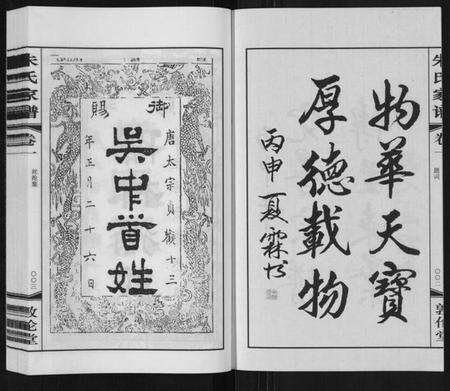 朱氏家譜
卷一
題詞
物華天寶
厚德載物
丙申夏霖书
敦倫堂
御賜
唐太宗貞觀十三
年正月二十六日
吳中首姓
朱氏家譜
卷一
敦倫堂